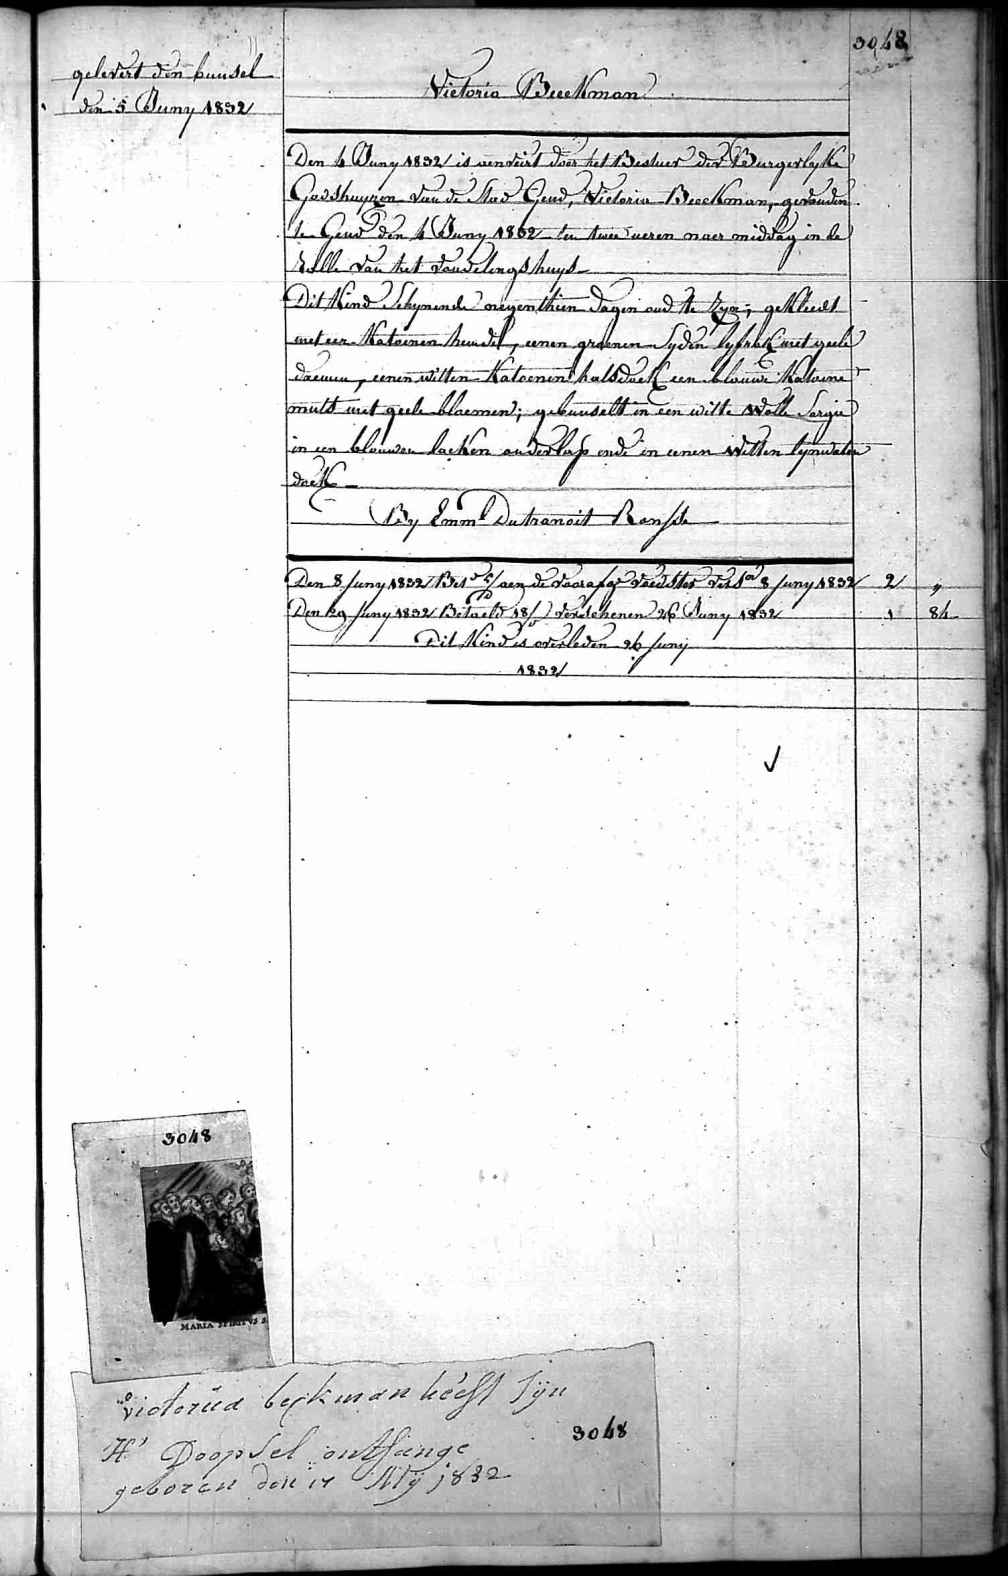 3048
gelevert den bunsel
den 5 Juny 1832
Victoria Beeckman
Den 4 Juny 1832 is aenveirt door het Bestuer der Burgerlyke
Godshuyzen van de Stad Gend, Victoria Beeckman, gevonden
te Gend den 4 Juny 1832 ten twee ueren naer middag in de
Rolle van het vondelingshuys
Dit Kind schynende negenthien dagen oud te zyn; gekleedt
met een Katoenen hemde, eenen groenen Syden lyfrok met geele
, eenen witten Katoenen halsdoek een blauwe Katoene
muts met geele bloemen; gebunselt in een witte wolle Sargie
in een blauwen laeken onderlap ende in eenen witten lynwaten
doek
By Emml Dutranoit Ronse
Den 8 Juny 1832 aen de voorafge Juny 1832 2 "
Den 29 Juny 1832 Betaeld 18 verschenen 26 Juny 1832 1 84
Dit Kind is overleden 26 Juny
1832
3048
MARIA SPIRITUS S
Victoriea beckman heeft syn
H' Doopsel ontfange
3048
geboren den 17 My 1832